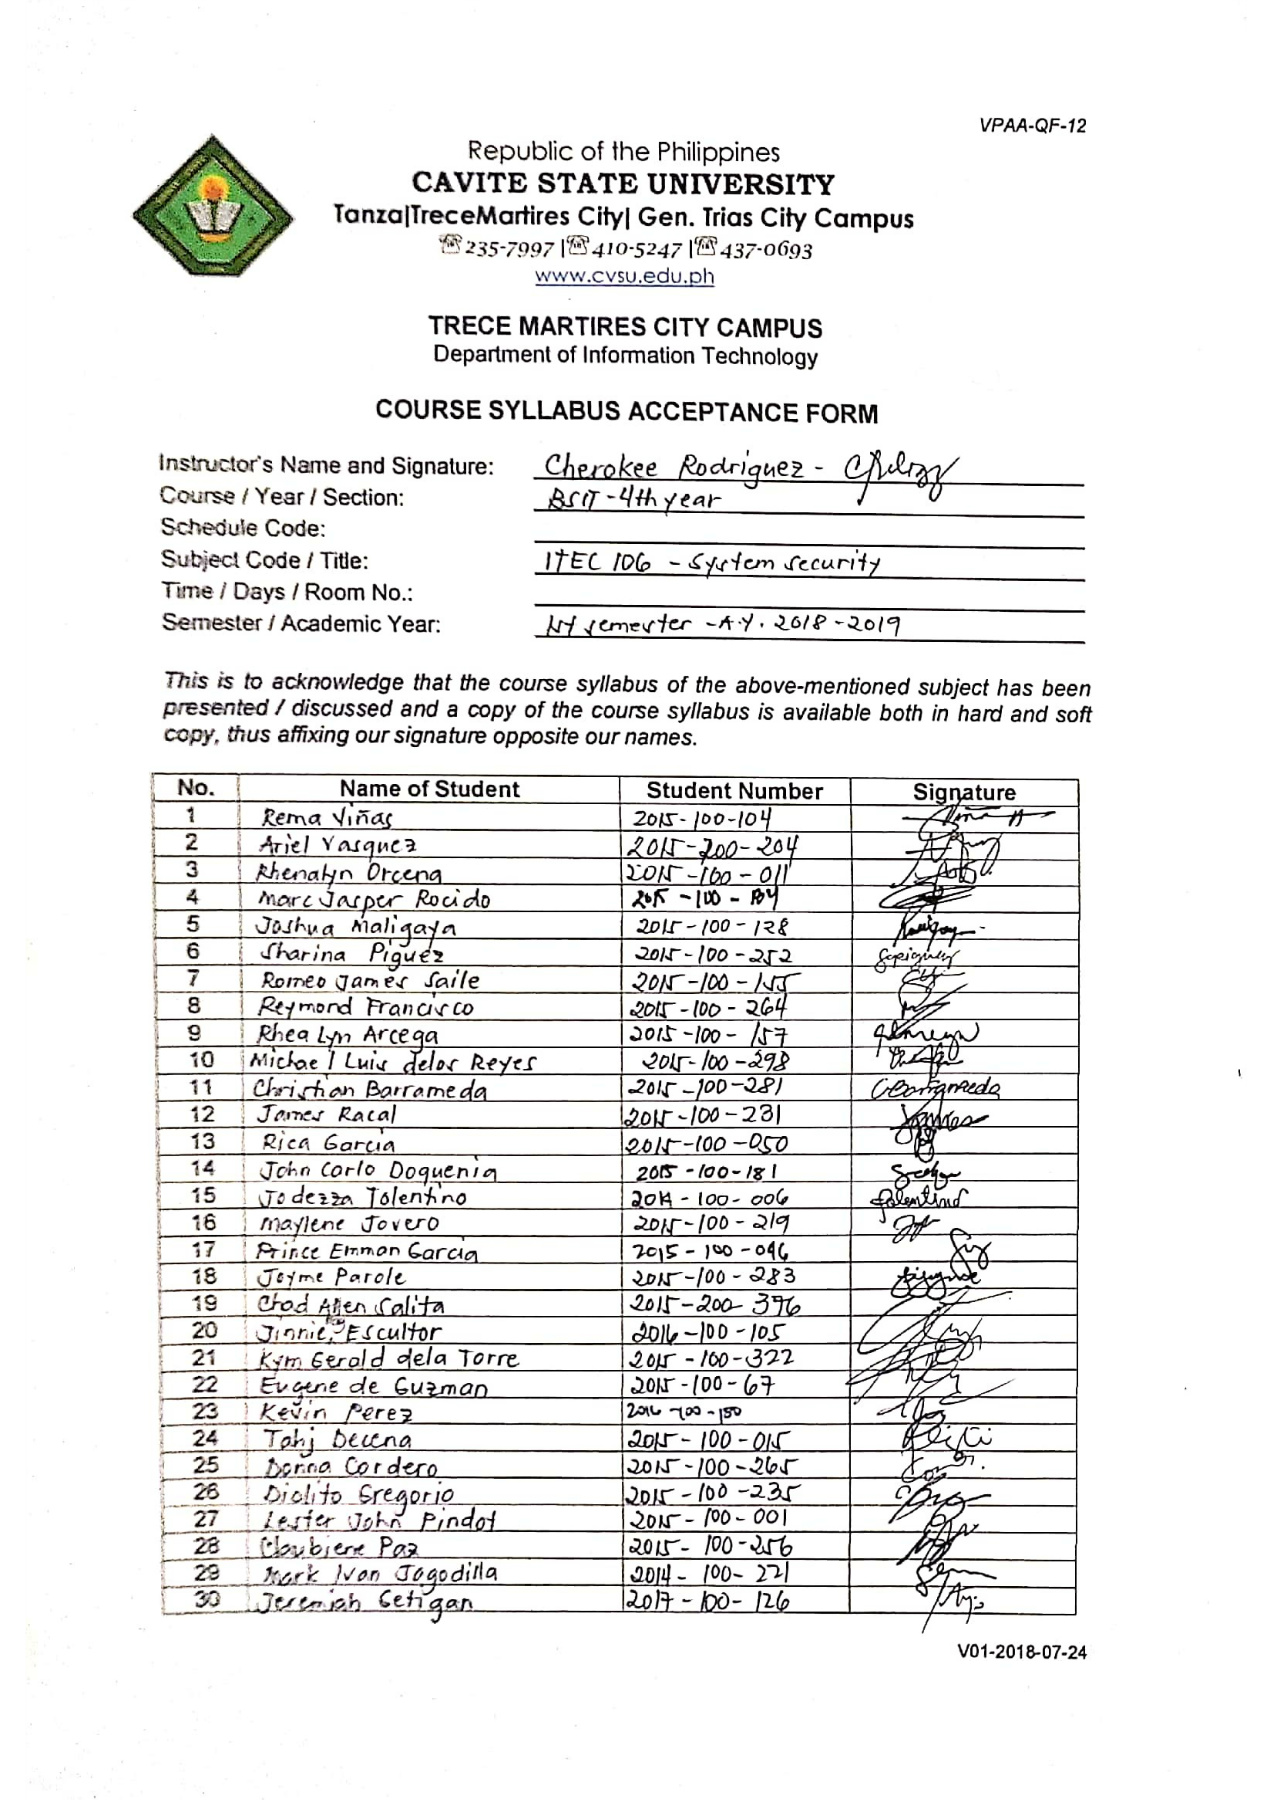 VPAA-QF-12
Republic of the Philippines
CAVITE STATE UNIVERSITY
Tanza|TreceMartires City| Gen. Trias City Campus
☎235-7997 |☎410-5247 |☎437-0693
www.cvsu.edu.ph
TRECE MARTIRES CITY CAMPUS
Department of Information Technology
COURSE SYLLABUS ACCEPTANCE FORM
Instructor's Name and Signature: Cherokee Rodriguez -
Course / Year / Section: BSIT - 4th year
Schedule Code:
Subject Code / Title: ITEC 106 - System Security
Time / Days / Room No.:
Semester / Academic Year: 1st semester - A.Y. 2018 - 2019
This is to acknowledge that the course syllabus of the above-mentioned subject has been
presented / discussed and a copy of the course syllabus is available both in hard and soft
copy, thus affixing our signature opposite our names.
No. Name of Student Student Number Signature
1 Rema Viñas 2015-100-104
2 Ariel Vasquez 2015-200-204
3 Rhenalyn Orcena 2015-100-011
4 Marc Jasper Rocido 2015-100-
5 Joshua Maligaya 2015-100-128
6 Sharina Piguez 2015-100-252
7 Romeo James Saile 2015-100-155
8 Reymond Francisco 2015-100-264
9 Rhea Lyn Arcega 2015-100-157
10 Michael Luis delos Reyes 2015-100-298
11 Christian Barrameda 2015-100-281
12 James Racal 2015-100-231
13 Rica Garcia 2015-100-050
14 John Carlo Doquenia 2015-100-181
15 Jodezza Tolentino 2014-100-006
16 Maylene Jovero 2015-100-219
17 Prince Emmon Garcia 2015-100-046
18 Jayme Parole 2015-100-283
19 Chad Allen Salita 2015-200-396
20 Jinnie Escultor 2016-100-105
21 Kym Gerald dela Torre 2015-100-322
22 Eugene de Guzman 2015-100-67
23 Kevin Perez 2016-100-150
24 Tohj Decena 2015-100-015
25 Donna Cordero 2015-100-265
26 Diolito Gregorio 2015-100-235
27 Lester John Pindot 2015-100-001
28 Claubiene Paz 2015-100-256
29 Mark Ivan Jagodilla 2014-100-221
30 Jeremiah Getigan 2017-100-126
V01-2018-07-24